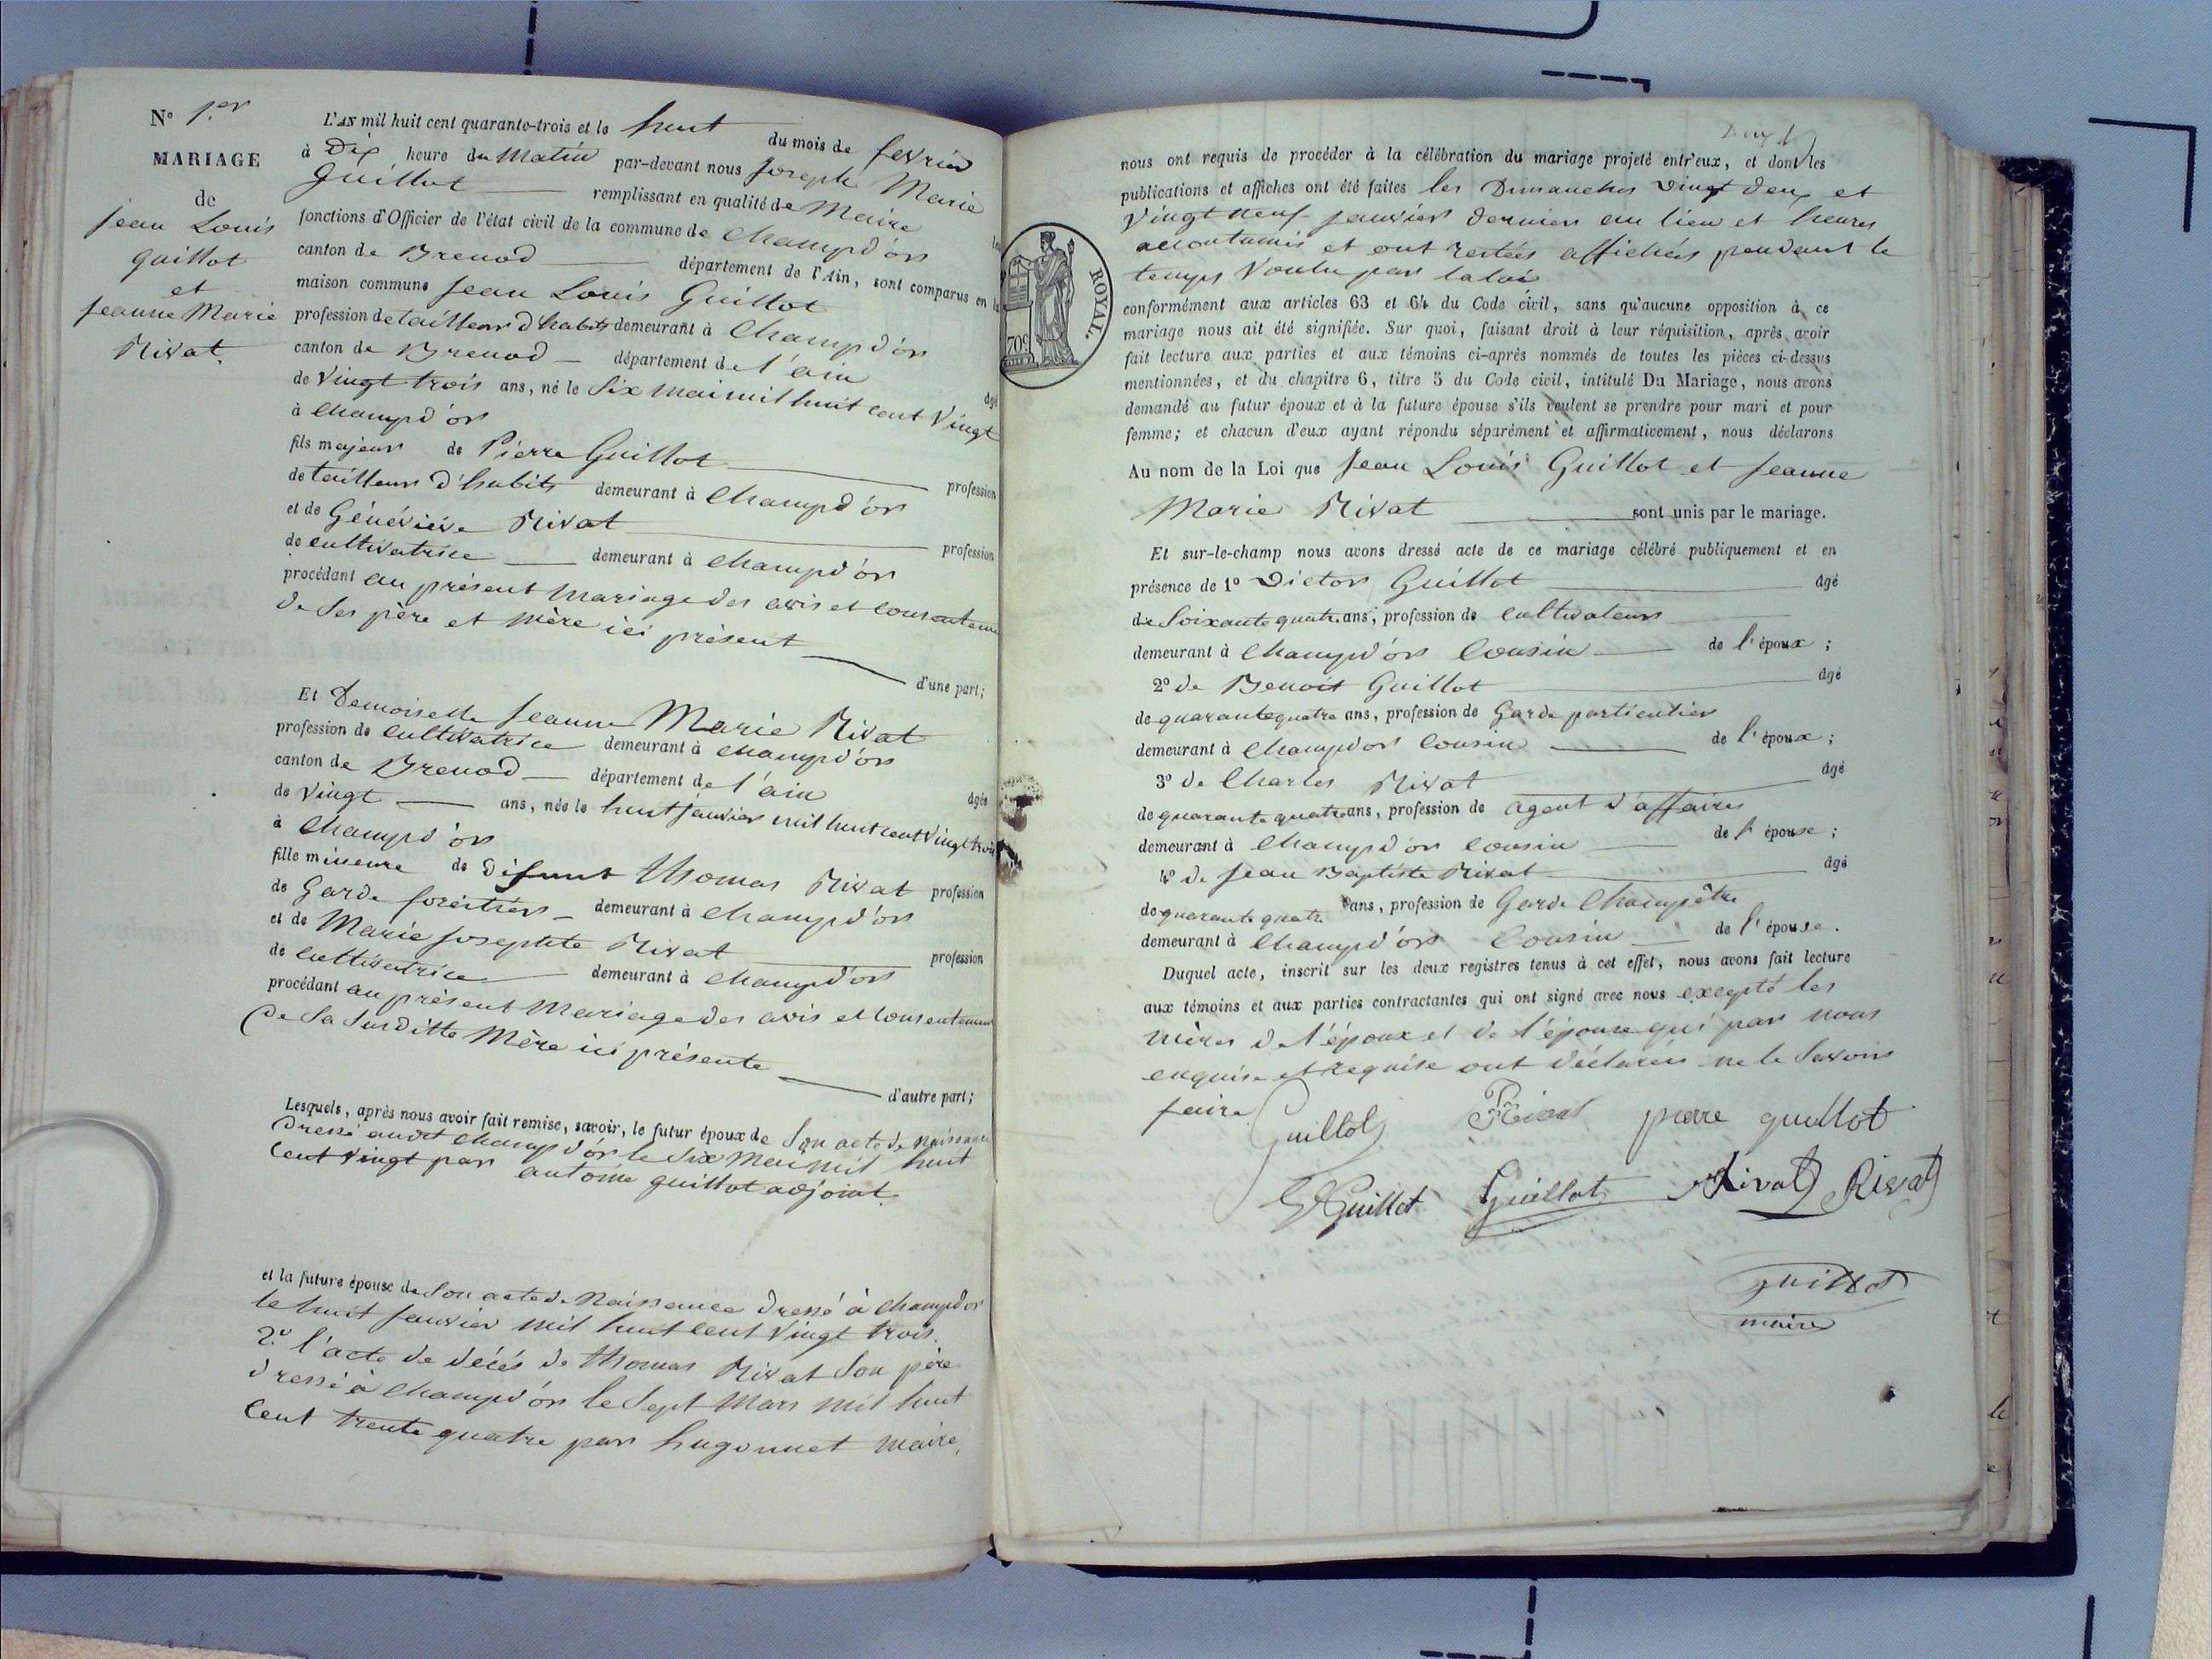 N° 1.er
MARIAGE
de
jean Louis
guillot
et
jeanne Marie
Rivat.
L'AN mil huit cent quarante-trois et le huit du mois de fevrier
à Dix heure du Matin par-devant nous joseph Marie
Guillot remplissant en qualité de Maire
fonctions d'Officier de l'état civil de la commune de Champd'or
canton de Brenod département de l'Ain, sont comparus en la
maison commune jean Louis Guillot
profession de tailleur d'habits demeurant à Champd'or
canton de Brenod département de l'ain
âgé
de Vingt trois ans, né le Six mai mil huit cent Vingt
à Champd'or
fils majeur de Pierre Guillot profession
de tailleur d'habits demeurant à Champd'or
et de Généviève Rivat profession
de cultivatrice demeurant à Champd'or
procédant au présent Mariage des avis et consenteme
de Ses père et Mère ici présent
d'une part;
Et Demoiselle jeanne Marie Rivat
profession de Cultivatrice demeurant à Champd'or
canton de Brenod département de l'ain
âgée
de Vingt ans, née le huit janvier mil huit cent Vingt trois
à Champd'or
fille mineure de Defunt thomas Rivat profession
de Garde foréstier demeurant à Champd'or
et de Marie josephte Rivat profession
de Cultivatrice demeurant à Champd'or
procédant au présent Mariage des avis et Consentement
de Sa Susditte Mère ici présente
d'autre part;
Lesquels, après nous avoir fait remise, savoir, le futur époux de Son acte de naissance
Dressé audit Champd'or le Six Mai mil huit
Cent Vingt par antoine guillot adjoint.
et la future épouse de Son acte de Naissance dressé à Champdor
le huit janvier mil huit Cent Vingt trois.
2.° l'acte de décés de thomas Rivat Son père
dressé à Champd'or le Sept Mars mil huit
Cent trente quatre par hugonnet maire,
ROYAL.
nous ont requis de procéder à la célébration du mariage projeté entr'eux, et dont les
publications et affiches ont été faites les Dimanches Vingt deux et
Vingt neuf janvier dernier au lieu et heures
accoutumés et ont restées affichées pendant le
temps Voulu par la loi
conformément aux articles 63 et 64 du Code civil, sans qu'aucune opposition à ce
mariage nous ait été signifiée. Sur quoi, faisant droit à leur réquisition, après avoir
fait lecture aux parties et aux témoins ci-après nommés de toutes les pièces ci-dessus
mentionnées, et du chapitre 6, titre 5 du Code civil, intitulé Du Mariage, nous avons
demandé au futur époux et à la future épouse s'ils veulent se prendre pour mari et pour
femme; et chacun d'eux ayant répondu séparément et affirmativement, nous déclarons
Au nom de la Loi que jean Louis Guillot et jeanne
Marie Rivat sont unis par le mariage.
Et sur-le-champ nous avons dressé acte de ce mariage célébré publiquement et en
présence de 1° Victor Guillot âgé
de Soixante quatre ans, profession de Cultivateur
demeurant à Champd'or Cousin de l'époux;
2° de Benoit Guillot âgé
de quarante quatre ans, profession de Garde particulier
demeurant à Champd'or Cousin de l'époux;
3° de Charles Rivat âgé
de quarante quatre ans, profession de agent d'affaires
demeurant à Champd'or Cousin de l'épouse;
4° de jean Baptiste Rivat âgé
de quarante quatre ans, profession de Garde Champêtre
demeurant à Champd'or Cousin de l'épouse.
Duquel acte, inscrit sur les deux registres tenus à cet effet, nous avons fait lecture
aux témoins et aux parties contractantes qui ont signé avec nous excepté les
mères de l'époux et de l'épouse qui par nous
enquise et requise ont déclarées ne le Savoir
faire
Guillot Rivat pierre guillot
Guillot Guillot Rivat Rivat
guillot
maire